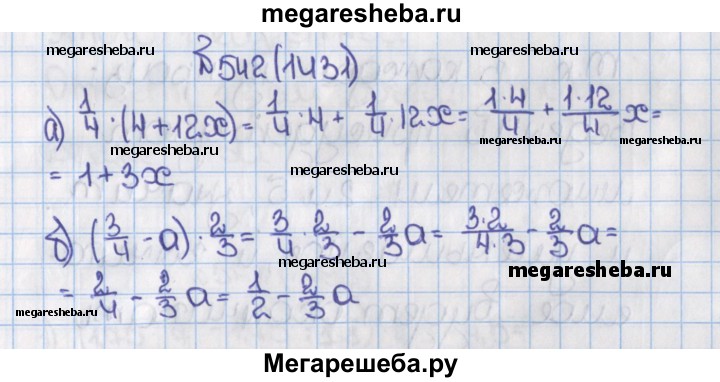 megaresheba.ru
megaresheba.ru
megaresheba.ru
№542(1431)
а) 1/4 · (4 + 12x) = 1/4 · 4 + 1/4 · 12x = 1·4/4 + 1·12/4 x =
megaresheba.ru
megaresheba.ru
megaresheba.ru
= 1 + 3x
megaresheba.ru
megaresheba.ru
б) (3/4 - a) · 2/3 = 3/4 · 2/3 - 2/3 a = 3·2/4·3 - 2/3 a =
megaresheba.ru
megaresheba.ru
= 2/4 - 2/3 a = 1/2 - 2/3 a
megaresheba.ru
megaresheba.ru
Мегарешеба.ру